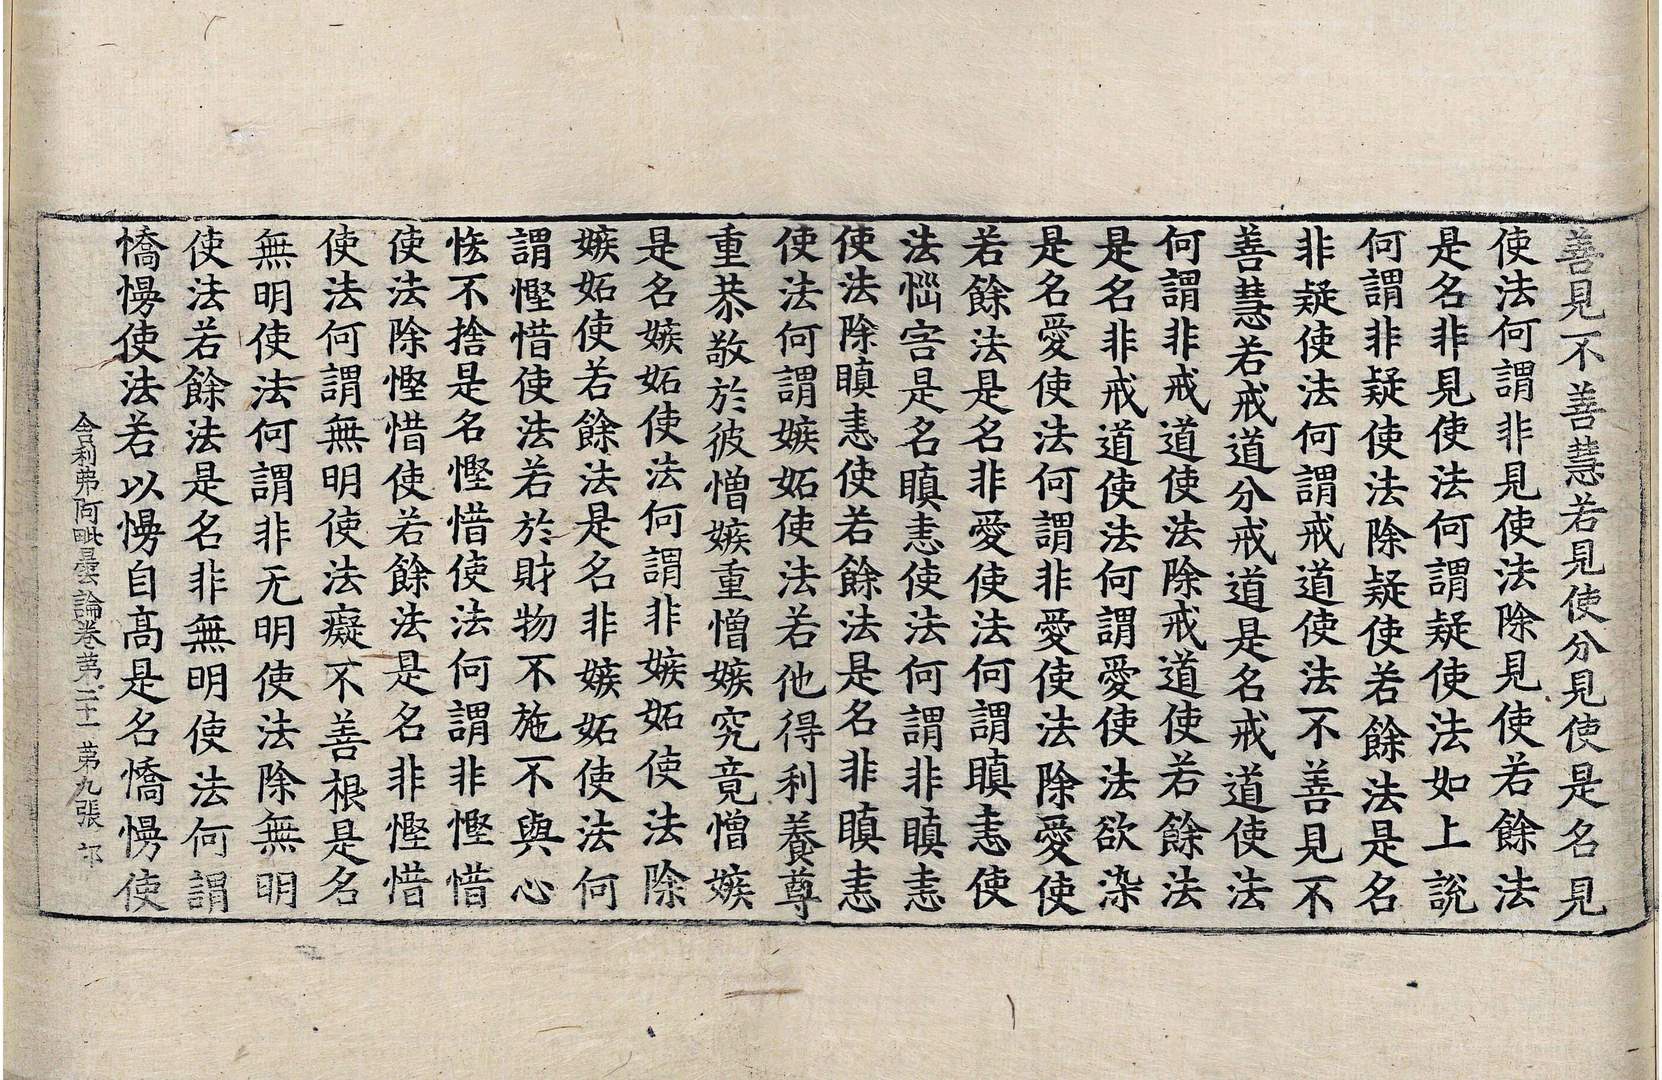 善見不善慧若見使分見使是名見
使法何謂非見使法除見使若餘法
是名非見使法何謂疑使法如上說
何謂非疑使法除疑使若餘法是名
非疑使法何謂戒道使法不善見不
善慧若戒道分戒道是名戒道使法
何謂非戒道使法除戒道使若餘法
是名非戒道使法何謂愛使法欲染
是名愛使法何謂非愛使法除愛使
若餘法是名非愛使法何謂瞋恚使
法惱害是名瞋恚使法何謂非瞋恚
使法除瞋恚使若餘法是名非瞋恚
使法何謂嫉妬使法若他得利養尊
重恭敬於彼憎嫉重憎嫉究竟憎嫉
是名嫉妬使法何謂非嫉妬使法除
嫉妬使若餘法是名非嫉妬使法何
謂慳惜使法若於財物不施不與心
悋不捨是名慳惜使法何謂非慳惜
使法除慳惜使若餘法是名非慳惜
使法何謂無明使法癡不善根是名
無明使法何謂非无明使法除無明
使法若餘法是名非無明使法何謂
憍慢使法若以慢自高是名憍慢使
舍利弗阿毗曇論卷第二十 第九張